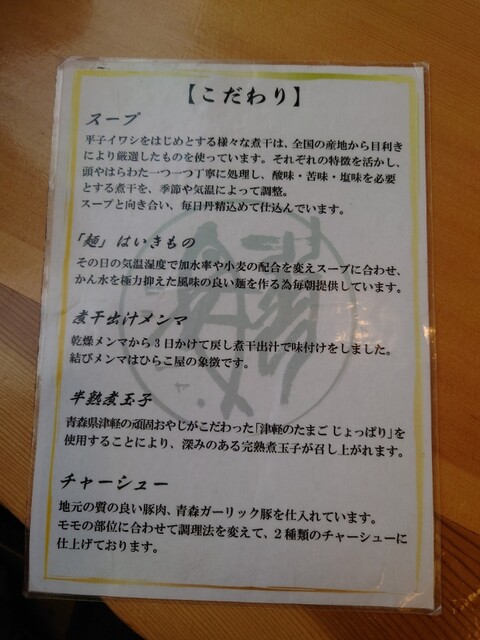 【こだわり】
スープ
平子イワシをはじめとする様々な煮干は、全国の産地から目利き
により厳選したものを使っています。それぞれの特徴を活かし、
頭やはらわた一つ一つ丁寧に処理し、酸味・苦味・塩味を必要
とする煮干を、季節や気温によって調整。
スープと向き合い、毎日丹精込めて仕込んでいます。
「麺」はいきもの
その日の気温湿度で加水率や小麦の配合を変えスープに合わせ、
かん水を極力抑えた風味の良い麺を作る為毎朝提供しています。
煮干出汁メンマ
乾燥メンマから3日かけて戻し煮干出汁で味付けをしました。
結びメンマはひらこ屋の象徴です。
半熟煮玉子
青森県津軽の頑固おやじがこだわった「津軽のたまご じょっぱり」を
使用することにより、深みのある完熟煮玉子が召し上がれます。
チャーシュー
地元の質の良い豚肉、青森ガーリック豚を仕入れています。
モモの部位に合わせて調理法を変えて、2種類のチャーシューに
仕上げております。